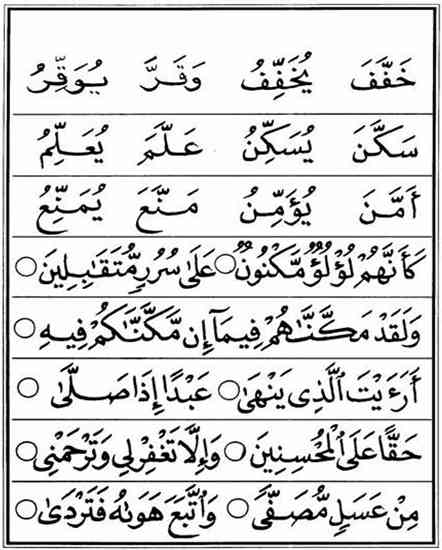 خَفَّفَ يُخَفِّفُ وَقَرَّ يُوَقِّرُ
سَكَّنَ يُسَكِّنُ عَلَّمَ يُعَلِّمُ
أَمَّنَ يُؤَمِّنُ مَنَّعَ يُمَنِّعُ
كَأَنَّهُمْ لُؤْلُؤٌ مَّكْنُونٌ ○ عَلَىٰ سُرُرٍ مُّتَقَٰبِلِينَ ○
وَلَقَدْ مَكَّنَّٰهُمْ فِيمَآ إِن مَّكَّنَّٰكُمْ فِيهِ
أَرَءَيْتَ ٱلَّذِى يَنْهَىٰ ○ عَبْدًا إِذَا صَلَّىٰ ○
حَقًّا عَلَى ٱلْمُحْسِنِينَ ○ وَإِلَّا تَغْفِرْ لِى وَتَرْحَمْنِى
مِنْ عَسَلٍ مُّصَفًّى ○ وَٱتَّبَعَ هَوَىٰهُ فَتَرْدَىٰ ○